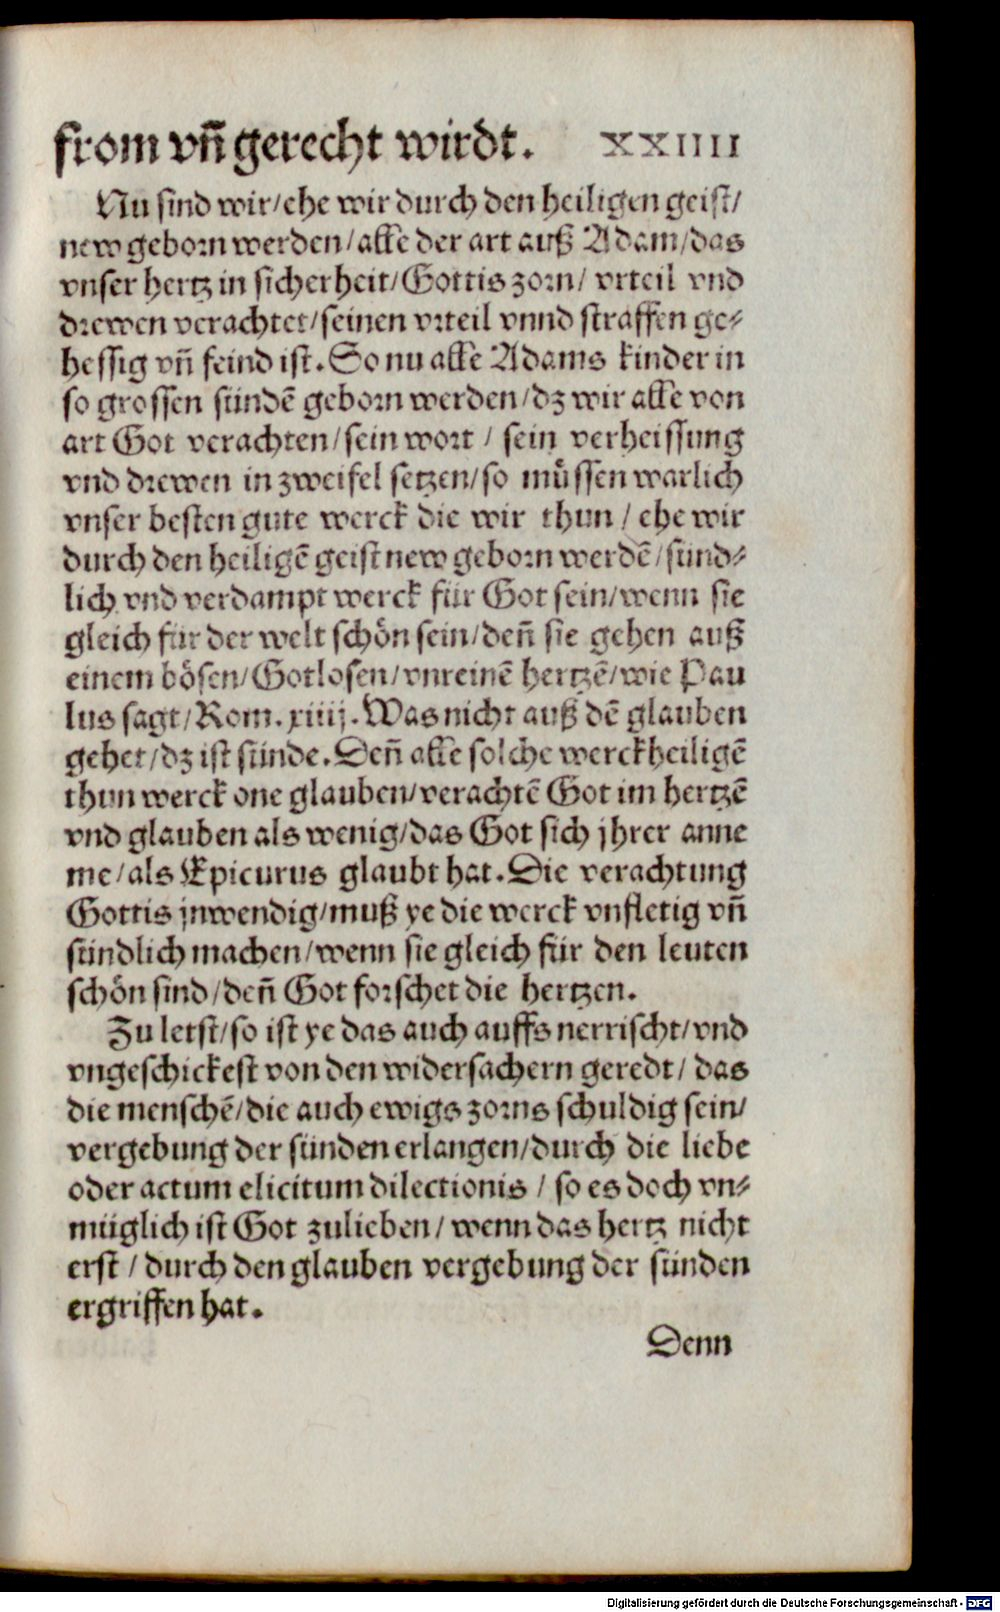 from vñ gerecht wirdt. XXIIII
Nu sind wir/ehe wir durch den heiligen geist/
new geborn werden/alle der art auß Adam/das
vnser hertz in sicherheit/Gottis zorn/ vrteil vnd
drewen verachtet/seinen vrteil vnnd straffen ge⸗
hessig vñ feind ist. So nu alle Adams kinder in
so grossen sündē geborn werden/dz wir alle von
art Got verachten/sein wort / sein verheissung
vnd drewen in zweifel setzen/so müssen warlich
vnser besten gute werck die wir thun / ehe wir
durch den heiligē geist new geborn werdē/sünd⸗
lich vnd verdampt werck für Got sein/wenn sie
gleich für der welt schön sein/deñ sie gehen auß
einem bösen/Gotlosen/vnreinē hertzē/wie Pau
lus sagt/Rom. xiiij. Was nicht auß dē glauben
gehet/dz ist sünde. Deñ alle solche werckheiligē
thun werck one glauben/verachtē Got im hertzē
vnd glauben als wenig/das Got sich jhrer anne
me/als Epicurus glaubt hat. Die verachtung
Gottis jnwendig/muß ye die werck vnfletig vñ
sündlich machen/wenn sie gleich für den leuten
schön sind/deñ Got forschet die hertzen.
Zu letst/so ist ye das auch auffs nerrischt/vnd
vngeschickest von den widersachern geredt/ das
die menschē/die auch ewigs zorns schuldig sein/
vergebung der sünden erlangen/durch die liebe
oder actum elicitum dilectionis / so es doch vn⸗
müglich ist Got zulieben/ wenn das hertz nicht
erst / durch den glauben vergebung der sünden
ergriffen hat.
Denn
Digitalisierung gefördert durch die Deutsche Forschungsgemeinschaft - DFG